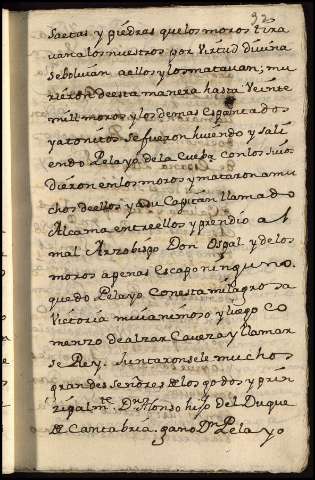 92
saetas y piedras que los moros tira
uan a los nuestros por Virtud diuina
se boluian a ellos y los matauan; mu
rieron de esta manera hasta Veinte
mill moros y los demas espantados
y atonitos se fueron huiendo y sali
endo Pelayo de la Cueba con los suios
dieron en los moros y mataron a mu
chos de ellos y a su Capitan llamado
Alcama entre ellos y prendio al
mal Arzobispo Don Ospal y de los
moros apenas escapo ninguno.
quedo Pelayo con esta milagrosa
Victoria mui animoso y luego co
menzo de alzar Caueza y llamar
se Rey. Juntaronsele muchos
grandes señores de los godos y prin
zipalmte. Dn. Alonso hijo del Duque
de Cantabria. gano Dn Pelayo